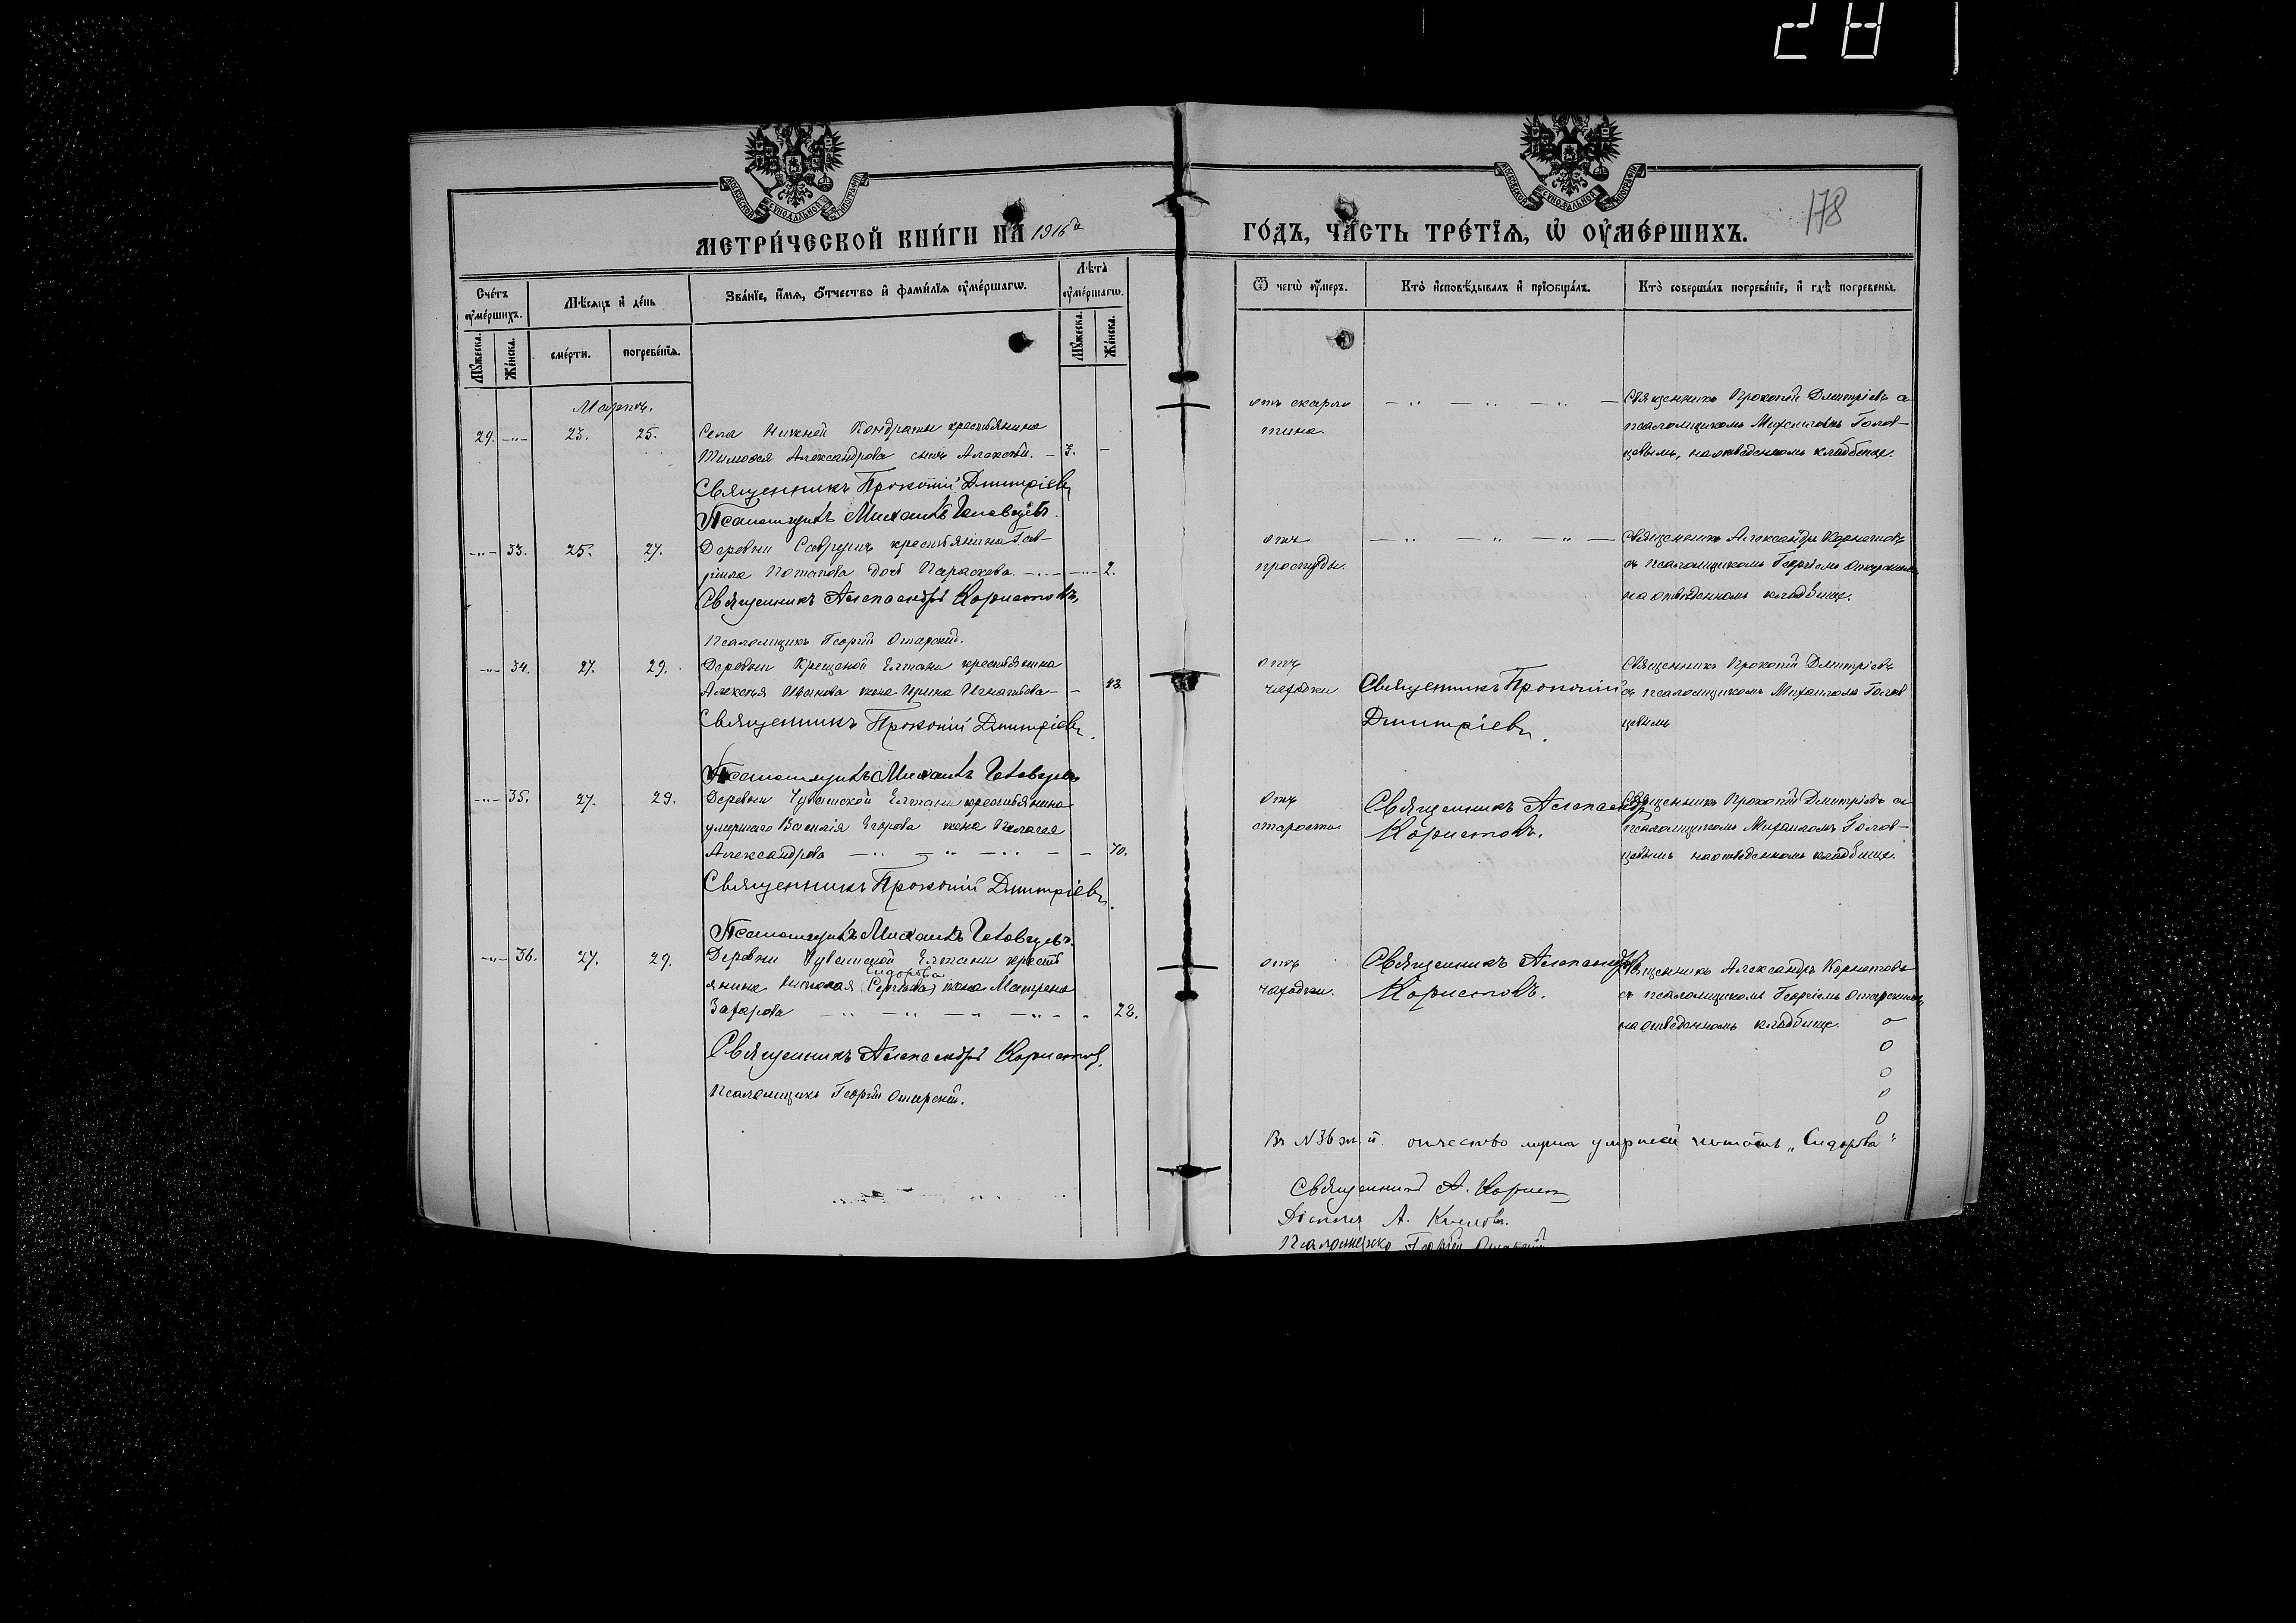 281
МОСКОВСКОЙ СѴНОДАЛЬНОЙ ТИПОГРАФІИ
МОСКОВСКОЙ СѴНОДАЛЬНОЙ ТИПОГРАФІИ
178
МЕТРИ́ЧЕСКОЙ КНИ́ГИ НА 1916й
ГО́ДЪ, ЧА́СТЬ ТРЕ́ТЇѦ, Ѡ҆ ОУ҆МЕ́РШИХЪ.
Сче́тъ оу҆ме́ршихъ.
Мѣ́сѧцъ и҆ де́нь
Зва́нїе, и҆́мѧ, ѻ҆́тчество и҆ фами́лїѧ оу҆ме́ршагѡ.
Лѣ́та оу҆ме́ршагѡ.
Ѿ чегѡ̀ оу҆́меръ.
Кто̀ и҆сповѣ́дывалъ и҆ прїѻбща́лъ.
Кто̀ соверша́лъ погребе́нїе, и҆ гдѣ̀ погребены̀.
Мꙋ́жеска.
Же́нска.
сме́рти.
погребе́нїѧ.
Мꙋ́жеска.
Же́нска.
Мартъ.
29. -"- 23. 25. Села Нижней Кондраты крестьянина
Тимоѳея Александрова сынъ Алексѣй. - 3. -
Священникъ Прокопій Дмитріевъ
Псаломщикъ Михаилъ Головцевъ.
отъ скарла
тина.
Священникъ Прокопій Дмитріевъ съ
псаломщикомъ Михаиломъ Голов-
цевымъ, на отведенномъ кладбище.
-"- 33. 25. 27. Деревни Саврушъ крестьянина Гав-
ріила Потапова дочь Параскева. 2.
Священникъ Александръ Кормстовъ,
Псаломщикъ Георгій Отарскій.
отъ
простуды.
Священникъ Александръ Кормстовъ
съ псаломщикомъ Георгіемъ Отарскимъ
на отведенномъ кладбище.
-"- 34. 27. 29. Деревни Крещеной Елтани крестьянина
Алексѣя Иванова жена Ирина Игнатьева - 43
Священникъ Прокопій Дмитріевъ.
Псаломщикъ Михаилъ Головцевъ
отъ
чахотки
Священникъ Прокопій
Дмитріевъ.
Священникъ Прокопій Дмитріевъ
съ псаломщикомъ Михаиломъ Голов
цевымъ
-"- 35. 27. 29. Деревни Чувашской Елтани крестьянина
умершаго Василія Егорова жена Пелагея
Александрова - 70.
Священникъ Прокопій Дмитріевъ.
Псаломщикъ Михаилъ Головцевъ.
Отъ
старости.
Священникъ Александръ
Кормстовъ.
Священникъ Прокопій Дмитріевъ съ
псаломщикомъ Михаиломъ Голов-
цевымъ на отведенномъ кладбище.
-"- 36. 27. 29. Деревни Чувашской Елтани кресть
Сидорова
янина Николая (Сергѣева) жена Матрена
Захарова - 28.
Священникъ Александръ Кормстовъ.
Псаломщикъ Георгій Отарскій.
отъ
чахотки.
Священникъ Александръ
Кормстовъ.
Священникъ Александръ Кормстовъ
съ псаломщикомъ Георгіемъ Отарскимъ
на отведенномъ кладбище.
Въ N 36 отчество мужа умершей читать „Сидорова"
Священникъ А.
Діаконъ А.
Псаломщикъ Георгій Отарскій